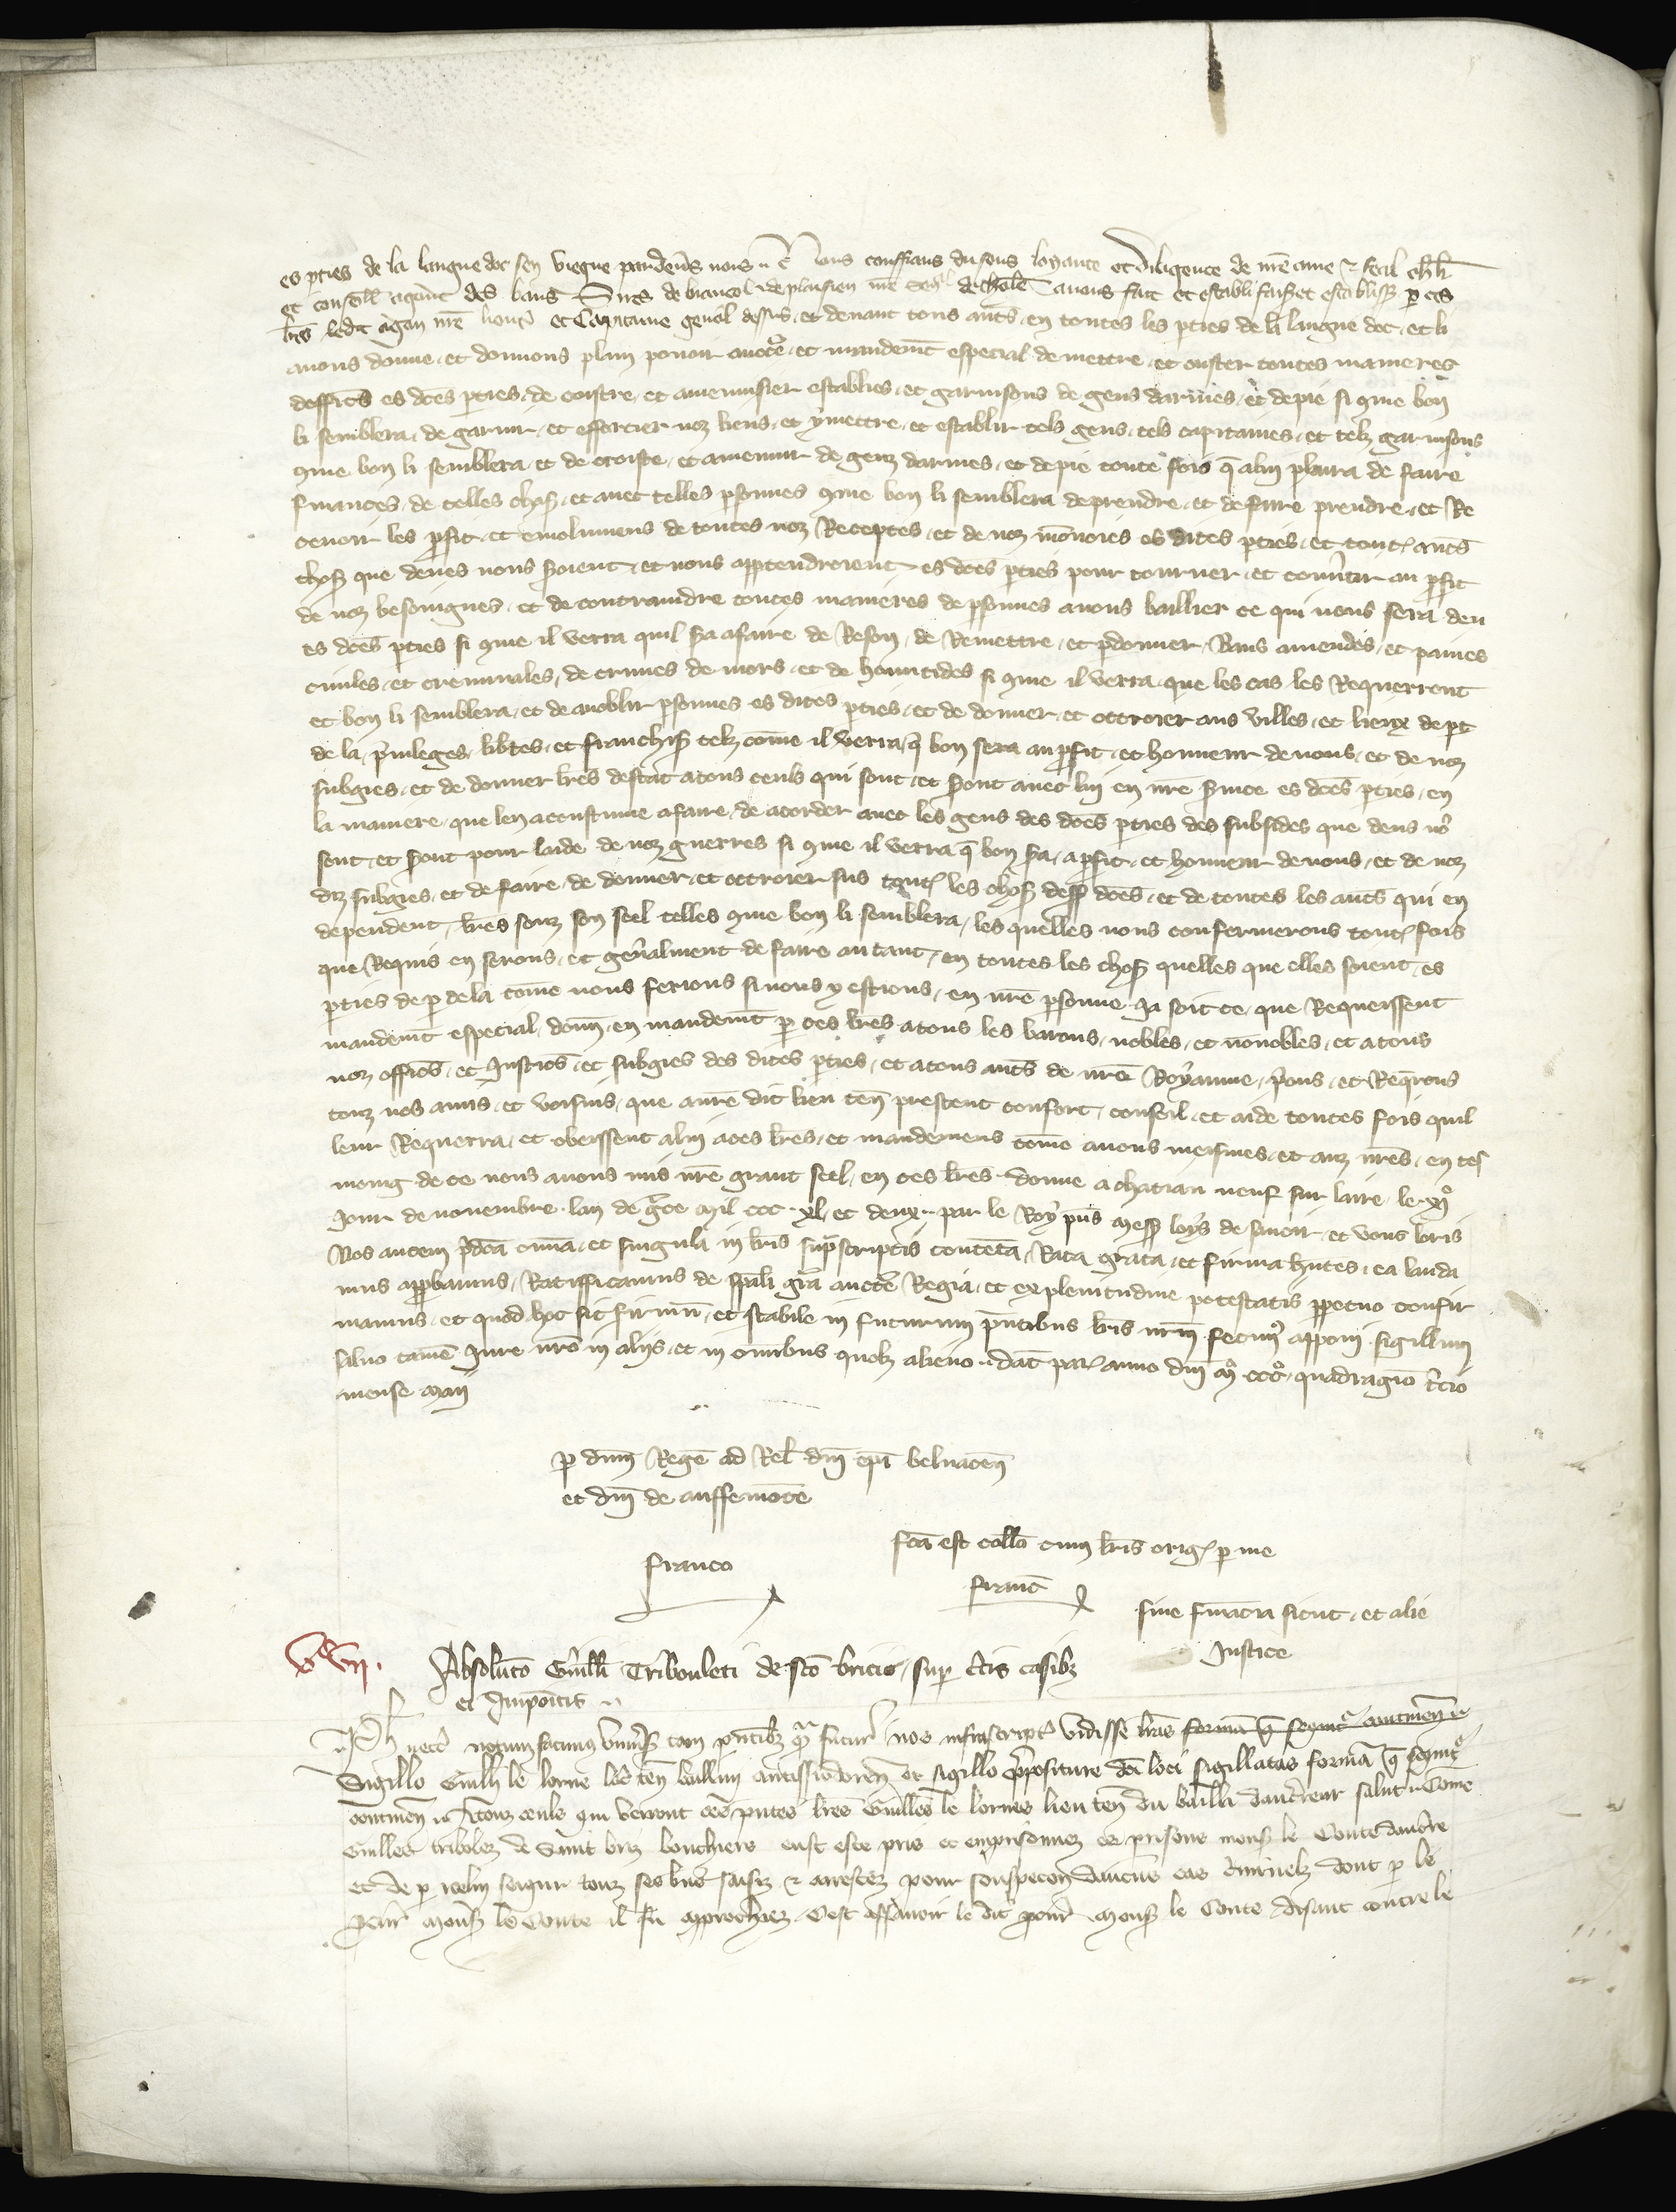 es pties de la langue doc sen viegne pardeus nous Nous confians du sens loyaute et diligence de nre ame et feal chlr
et conseill agout des baus Sires de brancol et de plaisien nre senl de thole avons fait et establi faisos et establissos p ces
lres ledit agou nre lieutn et Capitaine genal dessus et devant tous autres en toutes les pties de la langue doc et li
avons donne et donnons plain povoir auctte et mandemt especial de mettre et ouster toutes manieres
dofficrs es dces parties de croistre et amenuisier establies et garnisons de gens darmes et de pie si qme bon
li semblera de garnir et efforcier noz liens et y mettre et establir tels gens tels capitaines et telz garnisons
qme bon li semblera et de croiste et amenuir de genz darmes et de pie toute fois q alui plaira de faire
finances de telles chos et avec telles psonnes qme bon li semblera de prendre et de faire prendre et Re
cevoir les pfit et emolumens de toutes noz Receptes et de noz monoies es dites pties et tout autres
chos que deues nous soient et nous apptendroient es dces pties pour tourner et convertir au pfit
de noz besoingnes et de contraindre toutes manieres de psonnes a nous baillier ce qui nous sera deu
es dces pties si qme il verra quil sa afaire de Reson de Remettre et pdonner Bans amendes et paines
civiles et creminales de crimes de mors et de homicides si qme il verra que les cas les Requerront
et bon li semblera et de anoblir psonnes es dites pties et de donner et ottroier aus villes et lieux de pt
de la privileges libtes et franchis telz come il verra q bon sera au pfit et honneur de nous et de noz
subgies et de donner lres destat atous ceuls qui sont et sront avec lui en nre svice es dces pties en
la maniere que len acoustume afaire de acorder avec les gens des dces pties des subsides que deus ns
sont et sront pour laide de noz guerres si qme il verra q bon sa a pfit et honneur de nous et de noz
diz subgies et de faire de donner et ottroier sus tout les chos dess dces et de toutes les autres qui en
dependent lres souz son seel telles qme bon li semblera les quelles nous confermerons tout fois
que Requis en serons et genalment de faire autant en toutes les chos quelles que elles soient es
pties de p dela come nous ferions si nous y estions en nre psonne Ja soit ce que Requeissent
mandemt especial donn en mandemt p ces lres atous les barons nobles et nonobles et atous
noz officrs et Justicrs et subgies des dites pties et atous autres de nre Royaume prions et Reqrons
touz nos amis et voisins que anre dit lieu ten prestent confort conseil et aide toutes fois quil
leur Requerra et obeissent alui aces lres et mandemens come anous meismes et auz nres en tes
moing de ce nous avons mis nre grant seel en ces lres donne a chatiau neuf sur laire le xi
Jour de novembre lan de grce Mil ccc xl et deux par le Roy pns mess loys de savoir et vous loris
Nos autem pdca omia et singula in lris supscriptis contenta Rata grata et firma hntes ea lauda
mus appbamus Ratifficamus de spali gra aucte Regia et ex plenitudine potestatis ppetuo confir
mamus et quod hoc sit firmu et stabile in futurum pntibus lris nrm fecims apponi sigillum
salvo tame Jure nro in alijs et in omibus quolz alieno dat par anno dni m ccc quadragio tcio
mense Maij
p dnm Rege ad Rel dni epi belvacen
et dni de auffemote
franco
fca est collo cum lris orig p me
franc
sine fmacia sicut et alie
Justice
vc vii.
Absoluto Guilli Tribouleti de sco bricio sup ctis casibz
et Impoitis
Ph necc notum facimus univs tam pntibz q futur nos infrascript vidisse lras forma q sequit continen
Sigillo Guilli le lorne locu ten ballivi autissiodoren et sigillo ppositure dci loci sigillatas forma q sequit
continen A touz ceuls qui verront ces pntes lres Guilles le lornes lieu ten du bailli daucreur salut Come
Guilles tribolez de Saint briz bouchiers eust este pris et emprisonnez es prisons mons le Conte daucre
et de p icelui seigur touz ses bns saisiz et arestez pour souspecon daucus cas criminelz dont p le
pcur Mons le Conte il fu approchiez Cest assavoir le dit pcur Mons le Conte disant contre le